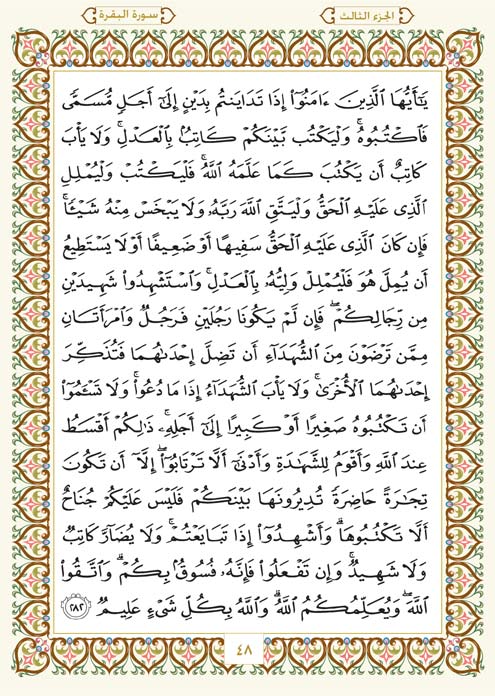 سورة البقرة
الجزء الثالث
يَـٰٓأَيُّهَا ٱلَّذِينَ ءَامَنُوٓا۟ إِذَا تَدَايَنتُم بِدَيْنٍ إِلَىٰٓ أَجَلٍ مُّسَمًّى
فَٱكْتُبُوهُ ۚ وَلْيَكْتُب بَّيْنَكُمْ كَاتِبٌۢ بِٱلْعَدْلِ ۚ وَلَا يَأْبَ
كَاتِبٌ أَن يَكْتُبَ كَمَا عَلَّمَهُ ٱللَّهُ ۚ فَلْيَكْتُبْ وَلْيُمْلِلِ
ٱلَّذِى عَلَيْهِ ٱلْحَقُّ وَلْيَتَّقِ ٱللَّهَ رَبَّهُۥ وَلَا يَبْخَسْ مِنْهُ شَيْـًٔا ۚ
فَإِن كَانَ ٱلَّذِى عَلَيْهِ ٱلْحَقُّ سَفِيهًا أَوْ ضَعِيفًا أَوْ لَا يَسْتَطِيعُ
أَن يُمِلَّ هُوَ فَلْيُمْلِلْ وَلِيُّهُۥ بِٱلْعَدْلِ ۚ وَٱسْتَشْهِدُوا۟ شَهِيدَيْنِ
مِن رِّجَالِكُمْ ۖ فَإِن لَّمْ يَكُونَا رَجُلَيْنِ فَرَجُلٌ وَٱمْرَأَتَانِ
مِمَّن تَرْضَوْنَ مِنَ ٱلشُّهَدَآءِ أَن تَضِلَّ إِحْدَىٰهُمَا فَتُذَكِّرَ
إِحْدَىٰهُمَا ٱلْأُخْرَىٰ ۚ وَلَا يَأْبَ ٱلشُّهَدَآءُ إِذَا مَا دُعُوا۟ ۚ وَلَا تَسْـَٔمُوٓا۟
أَن تَكْتُبُوهُ صَغِيرًا أَوْ كَبِيرًا إِلَىٰٓ أَجَلِهِۦ ۚ ذَٰلِكُمْ أَقْسَطُ
عِندَ ٱللَّهِ وَأَقْوَمُ لِلشَّهَـٰدَةِ وَأَدْنَىٰٓ أَلَّا تَرْتَابُوٓا۟ ۖ إِلَّآ أَن تَكُونَ
تِجَـٰرَةً حَاضِرَةً تُدِيرُونَهَا بَيْنَكُمْ فَلَيْسَ عَلَيْكُمْ جُنَاحٌ
أَلَّا تَكْتُبُوهَا ۗ وَأَشْهِدُوٓا۟ إِذَا تَبَايَعْتُمْ ۚ وَلَا يُضَآرَّ كَاتِبٌ
وَلَا شَهِيدٌ ۚ وَإِن تَفْعَلُوا۟ فَإِنَّهُۥ فُسُوقٌۢ بِكُمْ ۗ وَٱتَّقُوا۟
ٱللَّهَ ۖ وَيُعَلِّمُكُمُ ٱللَّهُ ۗ وَٱللَّهُ بِكُلِّ شَىْءٍ عَلِيمٌ ٢٨٢
٤٨